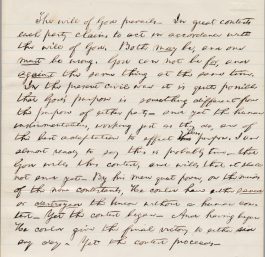 The will of God prevails. In great contests
each party claims to act in accordance with
the will of God. Both may be, and one
must be wrong. God can not be for, and
against the same thing at the same time.
In the present civil war it is quite possible
that God's purpose is something different from
the purpose of either party - and yet the human
instrumentalities, working just as they do, are of
the best adaptation to effect His purpose. I am
almost ready to say this is probably true - that
God wills this contest, and wills that it shall
not end yet. By his mere quiet power, on the minds
of the now contestants, He could have either saved
or destroyed the Union without a human con-
test. Yet the contest began. And having begun
He could give the final victory to either side
any day. Yet the contest proceeds.